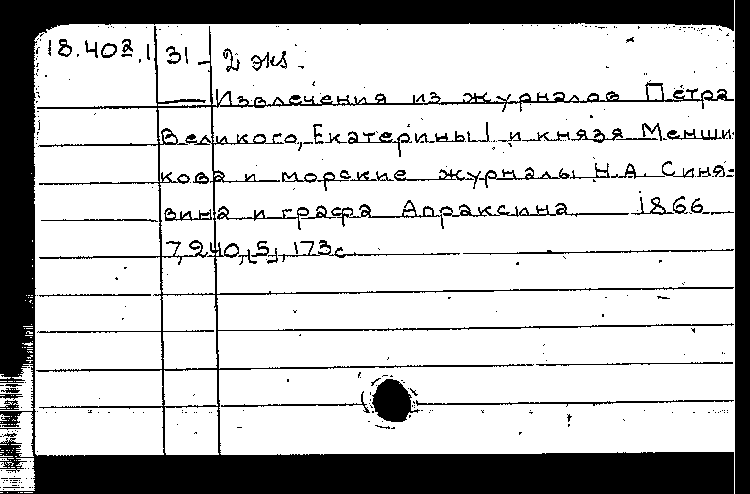 18.403.1 31 - 2 экз.
— Извлечения из журналов Петра
Великого, Екатерины I и князя Менши-
кова и морские журналы Н.А. Синя-
вина и графа Апраксина 1866
7,240,[5],173с